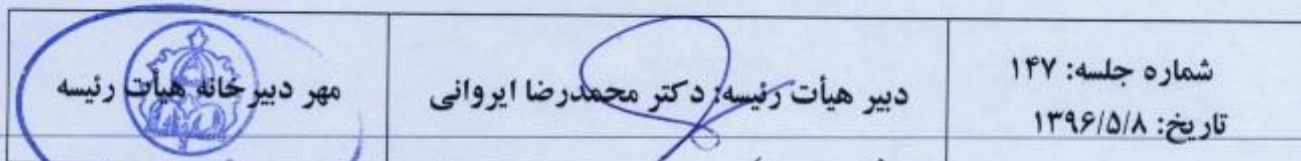 شماره جلسه: ۱۴۷
تاریخ: ۱۳۹۶/۵/۸
دبیر هیأت رئیسه: دکتر محمدرضا ایروانی
مهر دبیرخانه هیأت رئیسه